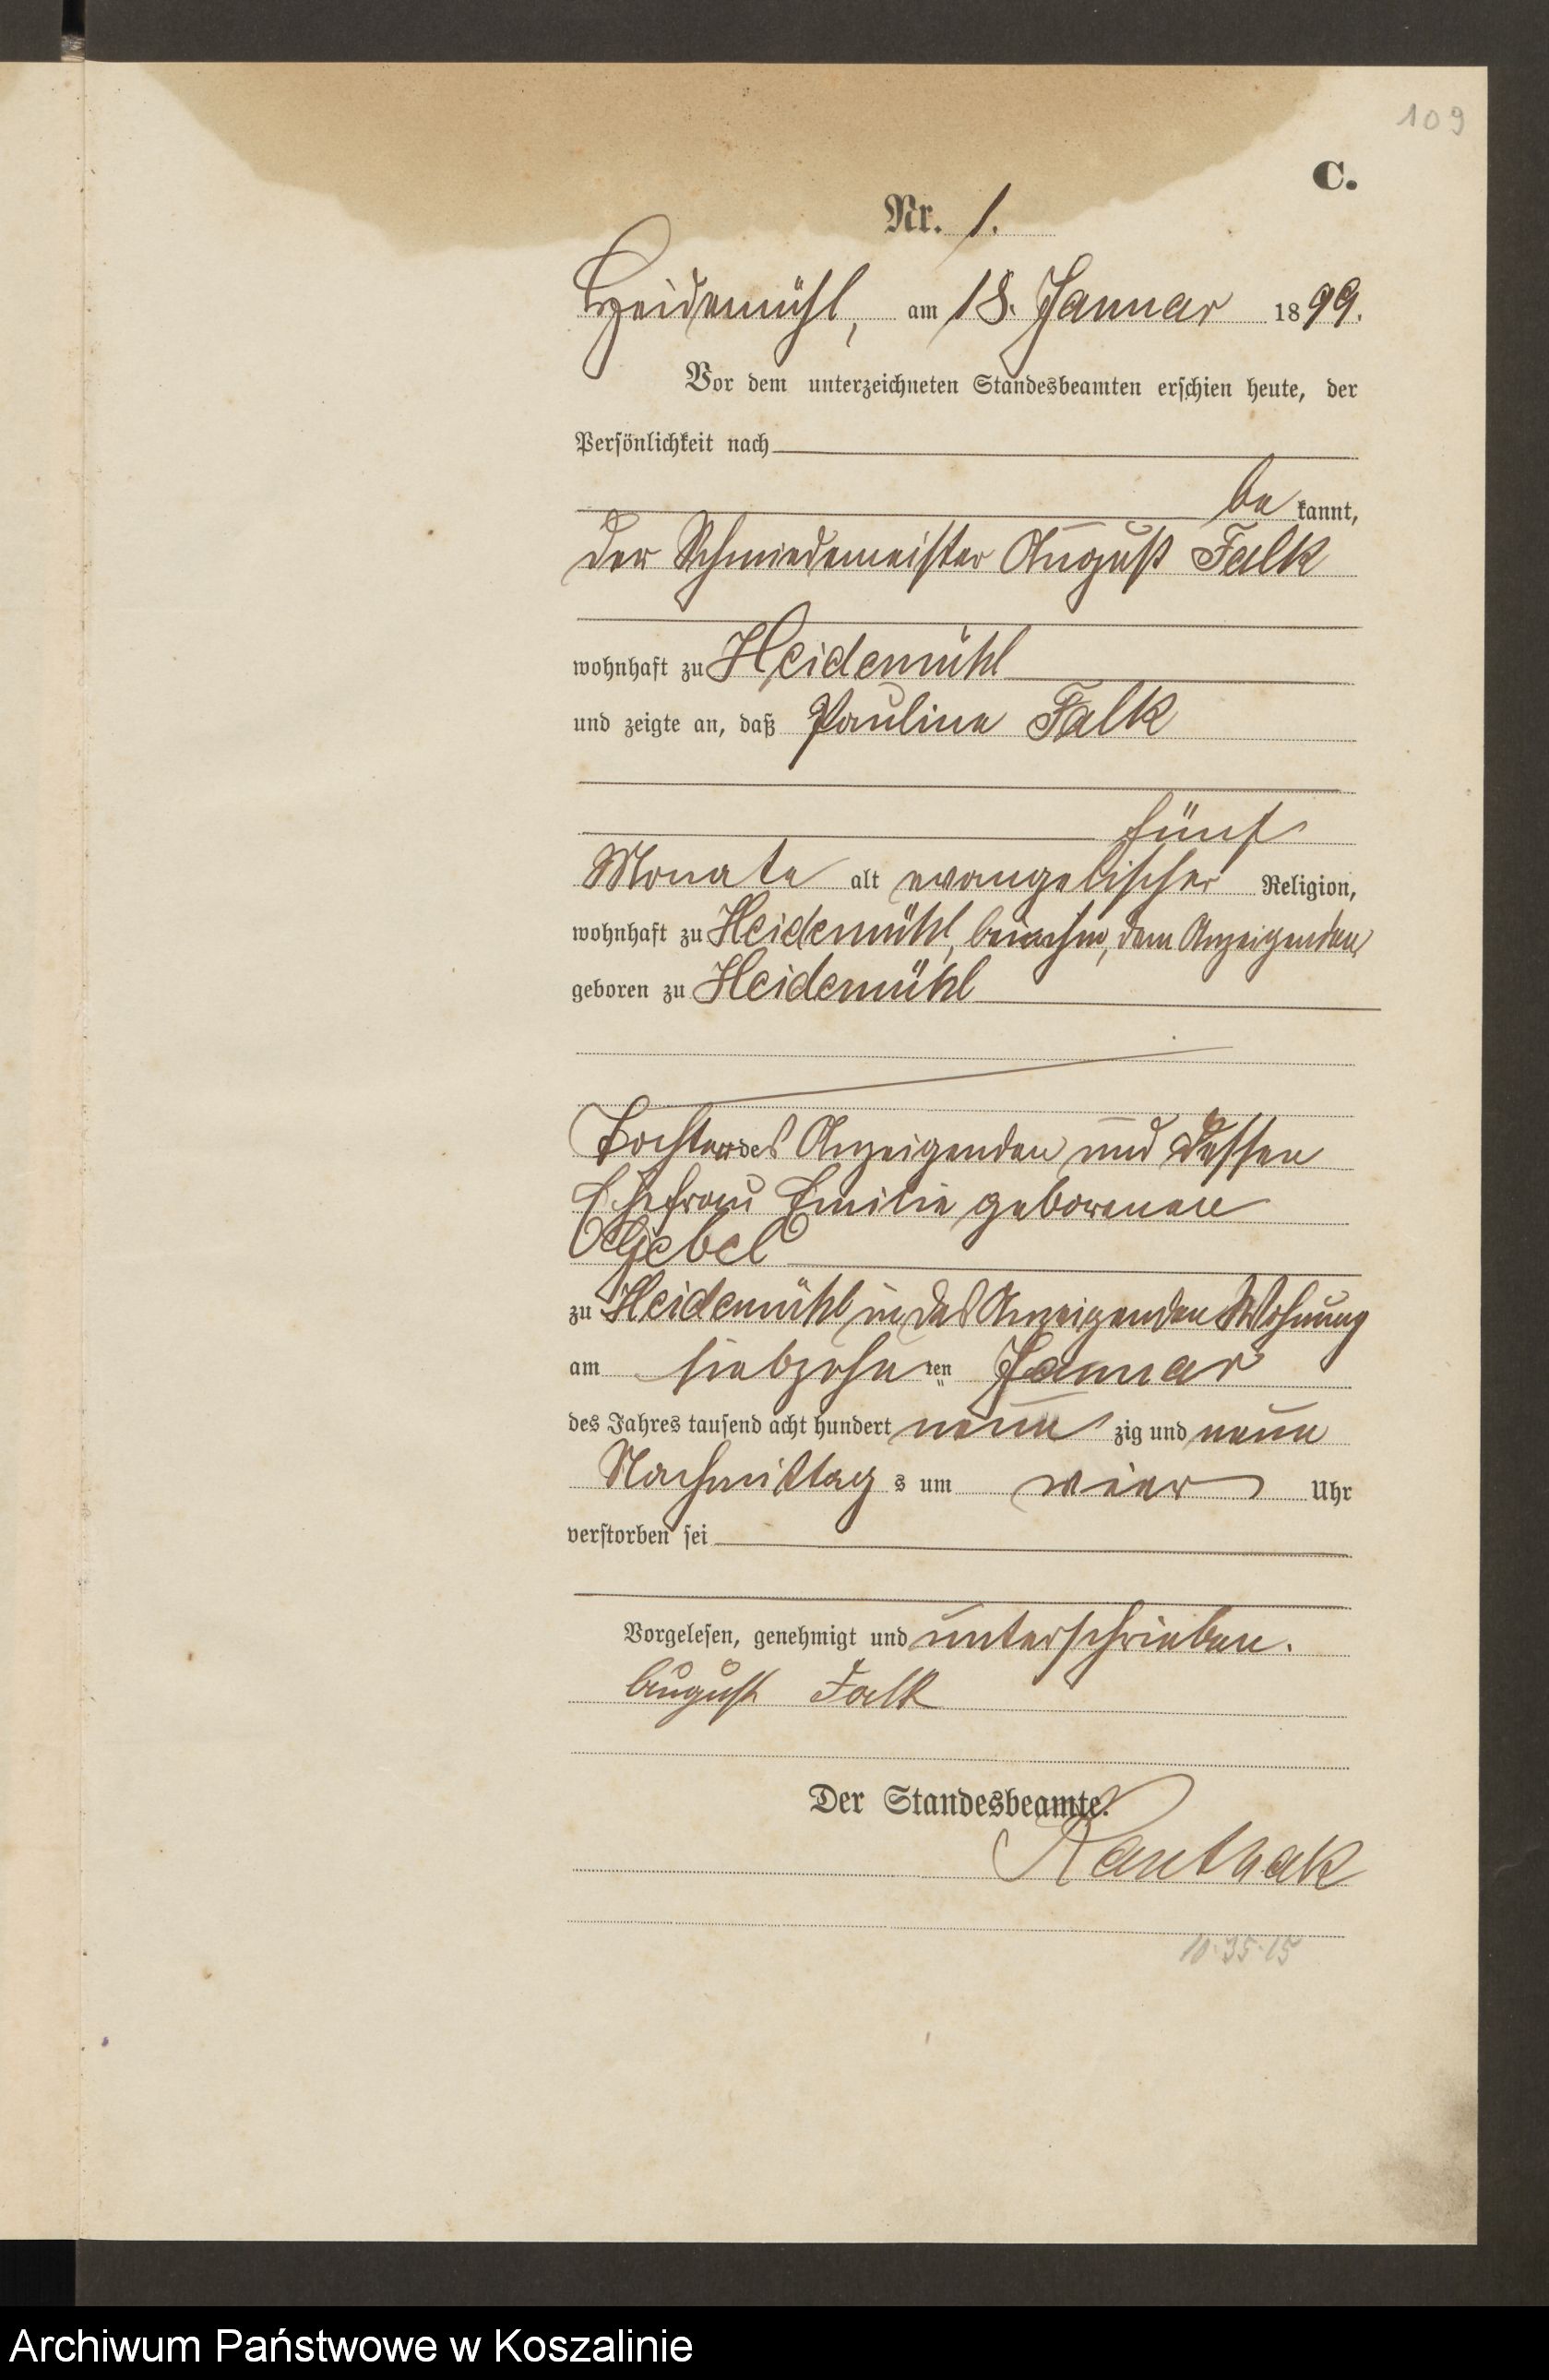 109
C.
Nr. 1.
Heidemühl, am 18. Januar 1899.
Vor dem unterzeichneten Standesbeamten erschien heute, der
Persönlichkeit nach
be kannt,
der Schmiedemeister August Falk
wohnhaft zu Heidemühl
und zeigte an, daß Pauline Falk
fünf
Monate alt evangelischer Religion,
wohnhaft zu Heidemühl, dem Anzeigenden
geboren zu Heidemühl
Tochter des Anzeigenden und dessen
Ehefrau Emilie geborenen
Gebel
zu Heidemühl in des Anzeigenden Wohnung
am siebzehn ten Januar
des Jahres tausend acht hundert neun zig und neun
Nachmittag s um vier Uhr
verstorben sei
Vorgelesen, genehmigt und unterschrieben.
August Falk
Der Standesbeamte.
10.35.15
Archiwum Państwowe w Koszalinie